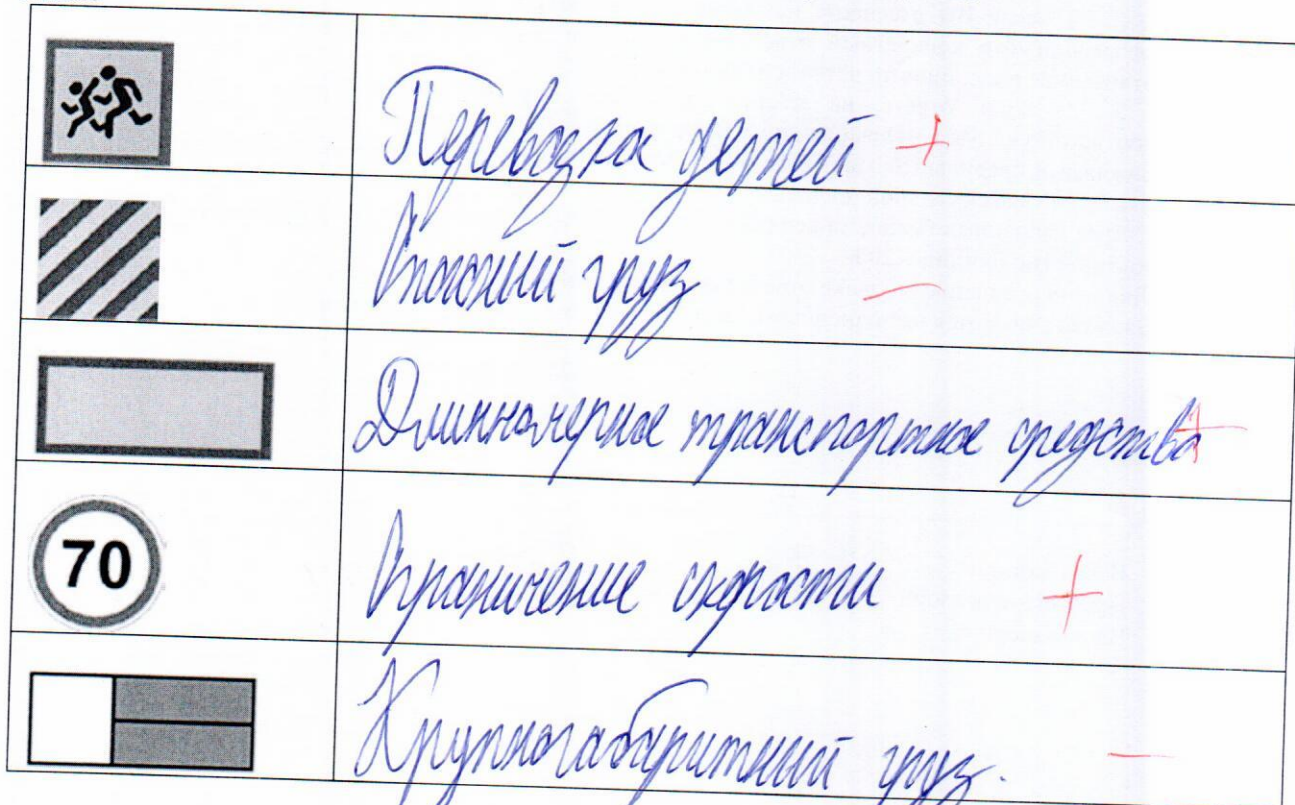 Перевозка детей +
Опасный груз −
Длинномерное транспортное средство +
70
Ограничение скорости +
Крупногабаритный груз. −